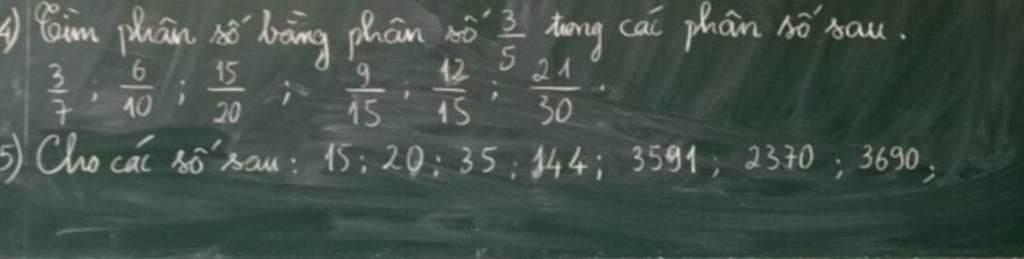 4) Tìm phân số bằng phân số 3/5 trong các phân số sau.
3/7 ; 6/10 ; 15/20 ; 9/15 ; 12/15 ; 21/30 .
5) Cho các số sau : 15 ; 20 ; 35 ; 144 ; 3591 ; 2370 ; 3690 ;